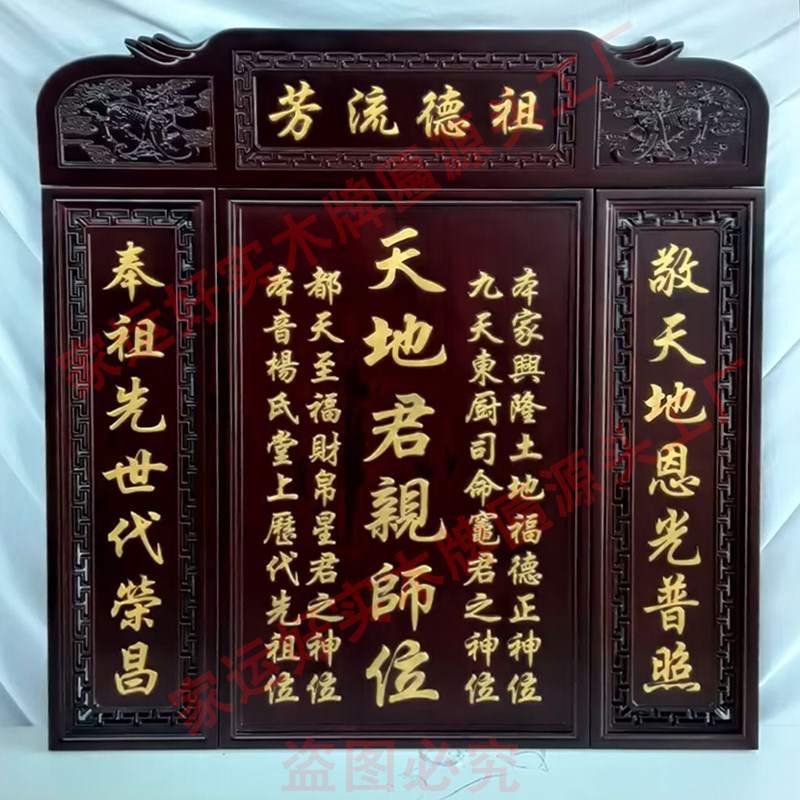 祖德流芳
敬天地恩光普照
本家興隆土地福德正神位
九天東厨司命竈君之神位
天地君親師位
都天至福財帛星君之神位
本音楊氏堂上歷代先祖位
奉祖先世代榮昌
家运好实木牌匾源头工厂
家运好实木牌匾源头工厂
盗图必究